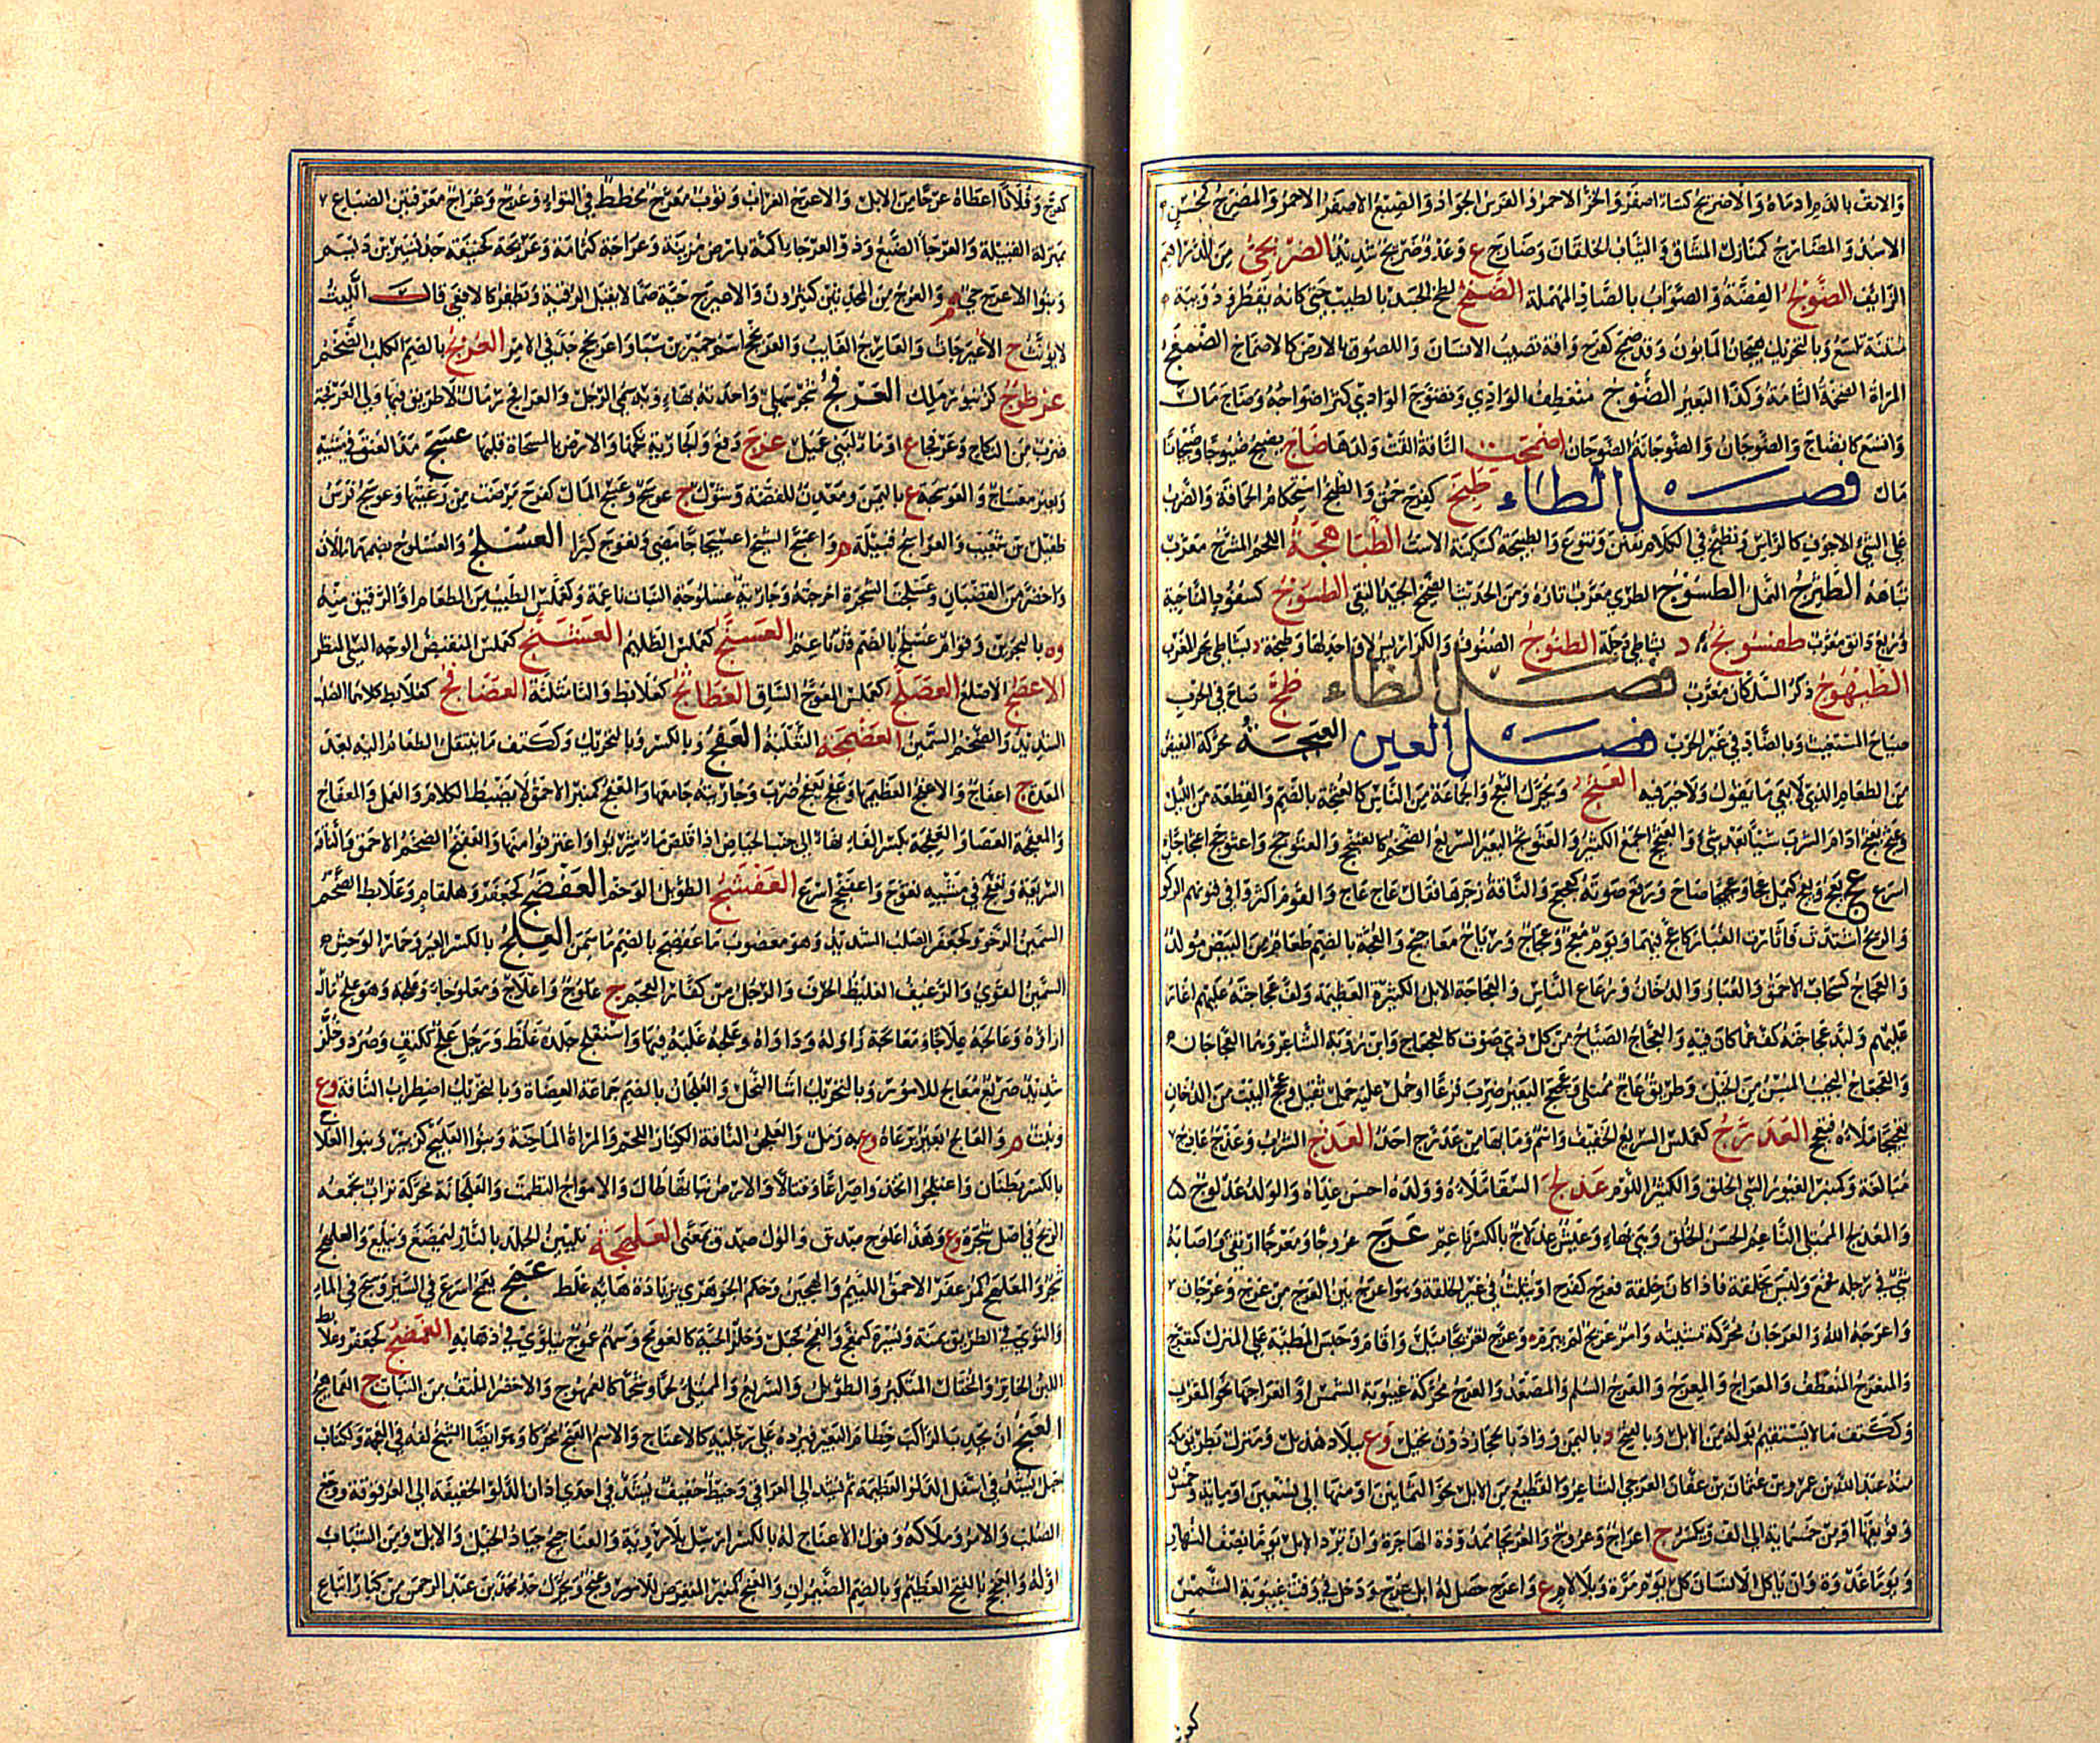 والانف بالدم ادماه والاضريج كساء اصفر والخز الاحمر والفرس الجواد والصبغ الاحمر والمضرج كمحسن
الاسد والمضارج كمنازل المشاق والثياب الخلقان وضارج ع وعدو ضريج شديد الضربجي من الدراهم
الزائف الضوج الفضة والصواب بالصاد المهملة الضمخ لطخ الجسد بالطيب حتى كانه يقطر ودويبة
منتنة تلسع وبالتحريك هيجان المابون وقد ضمج كفرح وافة تصيب الانسان واللصوق بالارض كالاضماج الضمعج
المراة الضخمة التامة وكذا البعير الضوج منعطف الوادي وتضوج الوادي كثر اضواجه وضاج مال
واتسع كانضاج والضوجان والضوجانة الصوجان اضمحت الناقة القت ولدها ضاج يضيج ضيوجا وضيجانا
مال فصل الطاء طبج كفرح حمق والطبج استحكام الحماقة والضرب
على الشيء الاجوف كالراس وتطبج في الكلام تفنن وتنوع والطبيجة كسكينة الاست الطباهجة اللحم المشرح معرب
تباهه الطثرج النمل الطسوج الطري معرب تازه ومن الحديث الصحيح الجيد النقي الطسوج كسفود الناحية
وربع دانق معرب طفسونج د بشاطئ دجلة الطنوج الصنوف والكراريس لا واحد لها وطنجة د بشاطئ بحر المغرب
الطيهوج ذكر السلكان معرب فصل الظاء ظج صاح في الحرب
صياح المستغيث وبالضاد في غير الحرب فصل العين العبجة محركة البغيض
من الطعام الذي لا يعي ما يقول ولا خير فيه العثج ويحرك الثعج والجماعة من الناس كالعثجة بالضم والقطعة من الليل
وعثج يعثج ادام الشرب شيئا بعد شيء والعثنج الجمع الكثير والعثوثج البعير السريع الضخم كالعثجج والعثوجج واعثوجج اعثيجاجا
اسرع عج يعج ويعج كيمل عجا وعجيجا صاح ورفع صوته كعجعج والناقة زجرها فقال عاج عاج والقوم اكثروا في فنونهم الركوب
والريح اشتدت فاثارت الغبار كاعج فيهما ويوم معج وعجاج ورياح معاجيج والعجة بالضم طعام من البيض مولد
والعجاج كسحاب الاحمق والغبار والدخان ورعاع الناس والعجاجة الابل الكثيرة العظيمة ولف عجاجته عليهم اغار
عليهم ولبد عجاجته كف عما كان فيه والعجاج الصياح من كل ذي صوت كالعجعاج وابن رؤبة الشاعر وهما العجاجان
والعجعاج النجيب المسن من الخيل وطريق عاج ممتلئ وعجعج البعير ضرب فرغا او حمل عليه حمل ثقيل وعجج البيت من الدخان
تعجيجا ملاه فتعجج العدرج كعملس السريع الخفيف واسم وما بها من عدرج احد العذج الشرب وعذج عاذج
مبالغة وكمنبر الغيور السيء الخلق والكثير اللوم عذلج السقاء ملاه وولده احسن غذاه والولد عذلوج
والمعذلج الممتلئ الناعم الحسن الخلق وهي بهاء وعيش عذلاج بالكسر ناعم عرج عروجا ومعرجا ارتقى واصابه
شيء في رجله فخمع وليس بخلقة فاذا كان خلقة فعرج كفرح او يثلث في غير الخلقة وهو اعرج بين العرج من عرج وعرجان
واعرجه الله والعرجان محركة مشيته وامر عريج لم يبرم وعرج تعريجا ميل واقام وحبس المطية على المنزل كتعرج
والمنعرج المنعطف والمعراج والمعرج السلم والمصعد والعرج محركة غيبوبة الشمس او انعراجها نحو المغرب
وككتف ما لا يستقيم بوله من الابل وبالعرج د باليمن وواد بالحجاز ذو نخيل وع ببلاد هذيل ومنزل بطريق مكة
منه عبد الله بن عمرو بن عثمان بن عفان العرجي الشاعر والقطيع من الابل نحو الثمانين او منها الى تسعين او مائة وخمسون
وفويقها او من خمسمائة الى الف ويكسر ج اعراج وعروج والعريجاء ممدودة الهاجرة وان ترد الابل يوما نصف النهار
ويوما غدوة وان ياكل الانسان كل يوم مرة وبلا لام ع واعرج حصل له ابل عرج ودخل في وقت غيبوبة الشمس
كعرج وفلانا اعطاه عرجا من الابل والاعرج الغراب وثوب معرج مخطط في التواء وعرج وعراج معرفتين الضباع
بمنزلة القبيلة والعرجاء الضبع وذو العرجاء اكمة بارض مزينة وعراجة كثمامة وعريجة كحنيفة جد نسير بن ديسم
وبنوا الاعرج حي م والعرج من المحدثين كثيرون والاعيرج حية صماء لا يقبل الرقية وتطفر كالافعى قال الليث
لا يؤنث ج الاعيرجات والعارج الغايب والعرنجج اسم حمير بن سبا واعرنجج جد في الامر العربج بالضم الكلب الضخم
عرطوج كزنبور ملك العرفج شجر سهلي واحدته بهاء وبه سمي الرجل والعرافج رمال لا طريق فيها ولي العرفجة
ضرب من النكاح وعرفجاء ع او ماء لبني عميل عزج دفع والجارية نكحها والارض بالمسحاة قلبها عسج مد العنق في مشيه
وبعير معساج والعوسجة ع باليمن ومعدن للفضة وشوك ج عوسج وعسج المال كفرح مرضت من رعيتها وعوسج فرس
طفيل بن شعيب والعواسج قبيلة م واعسج الشيخ اعسيجاجا مضى وتعوج كبرا العسلج والعسلوج بضمهما ما لان
واخضر من القضبان وعسلجت الشجرة اخرجته وجارية عسلوجة النبات ناعمة وكعملس الطيب من الطعام او الرقيق منه
وه بالبحرين وقوام عسلج بالضم قد ناعم العسنج كعملس الظليم العشنج كعملس المنقبض الوجه السيء المنظر
الاعصج الاصلع العصلج كعملس المعوج الساق العضاثج كعلابط والثاء مثلثة العضافج كعلابط كلاهما الصلب
الشديد والضخم السمين العضنجة الثعلبة العفج وبالكسر وبالتحريك وككتف ما ينتقل الطعام اليه بعد
المعدة ج اعفاج والاعفج العظيمها وعفج يعفج ضرب وجاريته جامعها والمعفج كمنبر الاحمق لا يضبط الكلام والعمل والعفاج
والمعفجة العصا والعفجة بكسر الفاء نهاء الى جنب الحياض اذا قلص ماء شربوا واغترفوا منها والعفنجج الضخم الاحمق والناقة
السريعة وتعفج في مشيه تعوج واعفنجج اسرع العفشج الطويل الوخم العفضج كجعفر وهلقام وعلابط الضخم
السمين الرخو وكجعفر الصلب الشديد وهو معصوب ما عفضج بالضم ما سمن العلج بالكسر العير وحمار الوحش
السمين القوي والرغيف الغليظ الحرف والرجل من كفار العجم ج علوج واعلاج ومعلوجاء وعلجة وهو علج مال
ازاؤه وعالجه علاجا ومعالجة زاوله وداواه وعلجه غلبه فيها واستعلج جلده غلظ ورجل علج ككتف وصرد وخلر
شديد صريع معالج للامور وبالتحريك اشاء النخل والعلجان بالضم جماعة العضاه وبالتحريك اضطراب الناقة وع
ونبت م والعالج بعير يرعاه وع به رمل والعلجن الناقة الكناز اللحم والمراة الماجنة وبنوا العليج كزبير وبنوا العلاج
بالكسر بطنان واعتلجوا اتخذوا صراعا وقتالا والارض نباتها طال والامواج التطمت والعلجانة محركة تراب تجمعه
الريح في اصل شجرة وع وهذا علوج صدق والوك صدق بمعنى العلهجة تليين الجلد بالنار ليمضغ ويبلع والعلهج
شجر والمعلهج كمزعفر الاحمق اللئيم والهجين وحكم الجوهري بزيادة هائه غلط عمج يعمج اسرع في السير وسبح في الماء
والتوى في الطريق يمنة ويسرة كتعمج والعمج كجبل وسكر الحية كالعومج وسهم عموج يتلوى في ذهابه العمضج كجعفر وعلابط
اللبن الخاثر والمختال المتكبر والطويل والسريع والممتلئ لحما وشحما كالعمهوج والاخضر الملتف من النبات ج العماهج
العنج ان يجذب الراكب خطام البعير فيرده على رجليه كالاعناج والاسم العنج محركا وهو ايضا الشيخ لغة في الغنج وككتاب
حبل يشد في اسفل الدلو العظيمة ثم يشد الى العراقي وخيط خفيف يشد في احدى اذان الدلو الخفيفة الى العرقوة ووجع
الصلب والامر وملاكه وقول لا عناج له بالكسر ارسل بلا روية والعناجيج جياد الخيل والابل ومن الشباب
اوله والعنجج بالفتح العظيم وبالضم الضيمران والعنج كمنبر المتعرض للامور وعنج ويحرك جد محمد بن عبد الرحمن من كبار اتباع